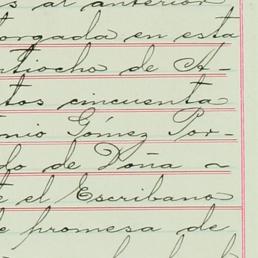 s al anterior
orgada en esta
ntiocho de A-
tos cincuenta
onio Gómez Por-
do de Doña ~
te el Escribano
e promesa de